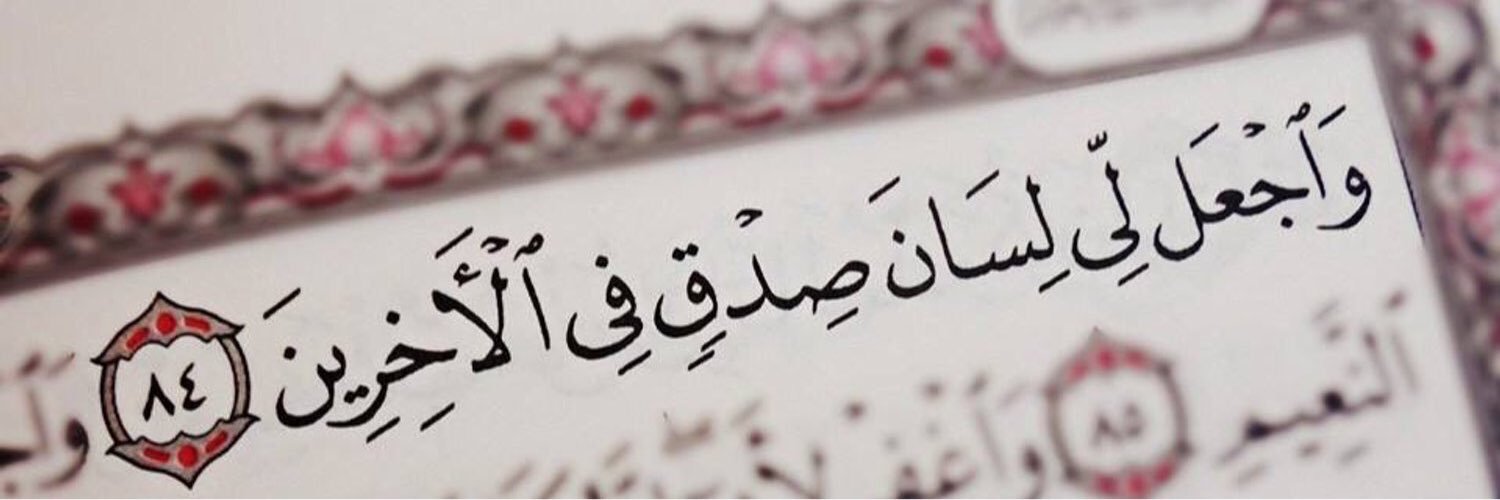 وَٱجْعَل لِّى لِسَانَ صِدْقٍ فِى ٱلْـَٔاخِرِينَ ٨٤
ٱلنَّعِيمِ ٨٥ وَٱغْفِرْ